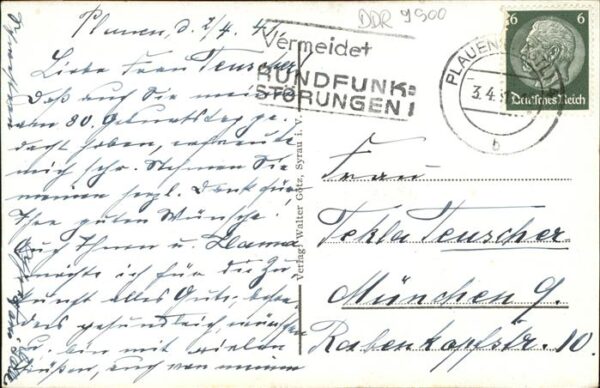 Plauen, d. 2/4. 41.
Liebe Frau Teuscher!
Daß auch Sie meines
80. Geburtstag ge-
dacht haben, erfreute
mich sehr. Nehmen Sie
meinen herzl. Dank für
Ihre guten Wünsche!
Auch Ihnen u.
möchte ich für die Zu-
kunft alles Gute, beson-
ders gesundheitlich, wünschen
u. bin mit vielen
Grüßen, auch von meinen
Verlag: Walter Götz, Syrau i. V.
DDR 9900
Vermeidet
RUNDFUNK=
STÖRUNGEN!
PLAUEN
3.4.
b
6 6
Deutsches Reich
Frau
Tekla Teuscher
München 9.
Rabenkopfstr. 10.